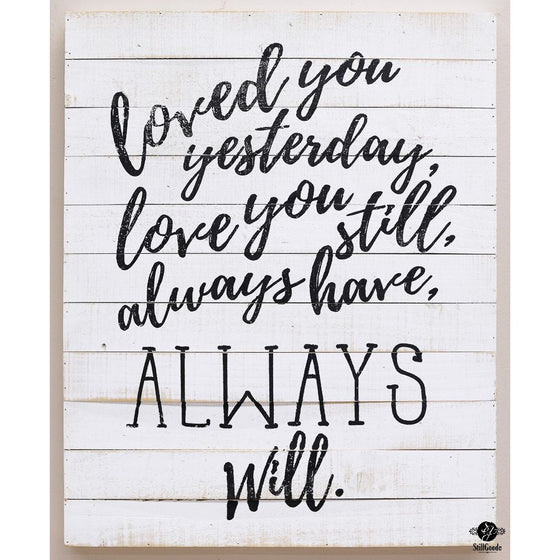 loved you
yesterday,
love you still,
always have,
ALWAYS
Will.
StillGoode